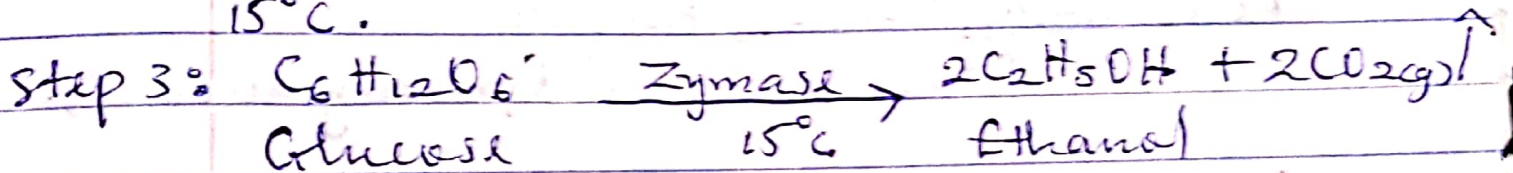 15°C.
Step 3: C₆H₁₂O₆ Zymase → 2C₂H₅OH + 2CO₂(g)↑
Glucose 15°C Ethanol